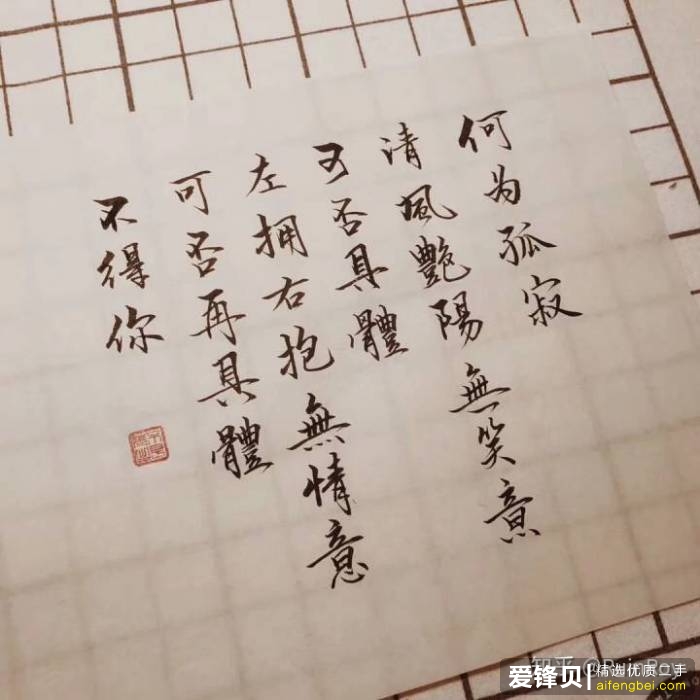 何为孤寂
清風艷陽無笑意
可否具體
左拥右抱無情意
可否再具體
不得你
知乎
爱锋贝
精选优质二手
aifengbei.com